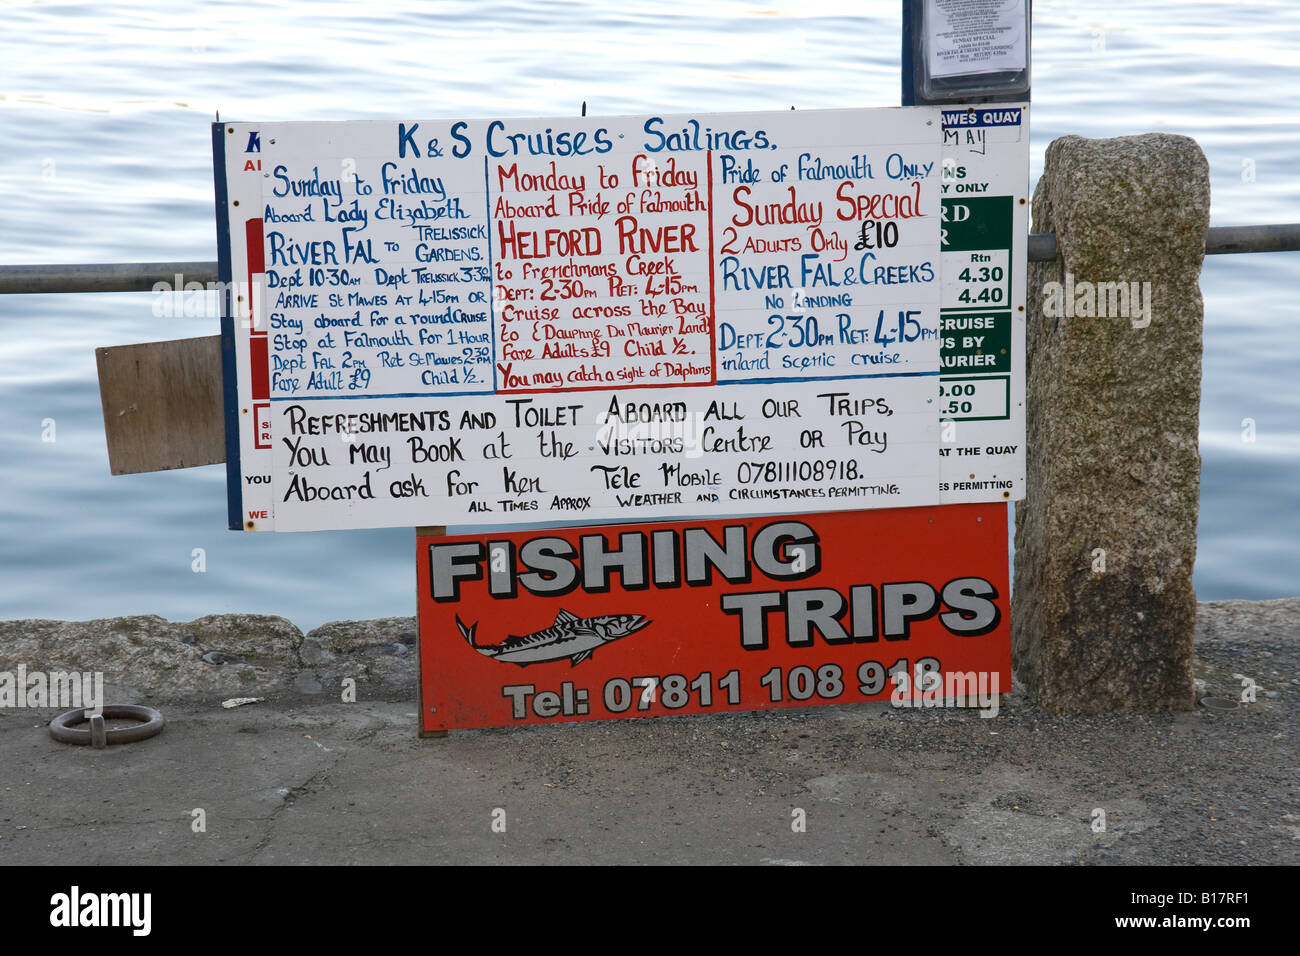 K & S Cruises Sailings.
Sunday to Friday
Aboard Lady Elizabeth
RIVER FAL TO TRELISSICK GARDENS.
Dept 10:30AM Dept TRELISSICK 3:30PM
ARRIVE St MAWES AT 4-15PM OR
Stay aboard for a round CRUISE
Stop at Falmouth for 1 HOUR
Dept FAL 2PM Ret St MAWES 2:30PM
Fare Adult £9 Child ½.
Monday to Friday
Aboard Pride of Falmouth
HELFORD RIVER
to Frenchmans Creek
DEPT: 2-30PM RET: 4-15PM.
Cruise across the Bay
to (Dauphne Du Maurier Land)
Fare Adults £9 Child ½.
You may catch a sight of Dolphins
Pride of Falmouth ONLY
Sunday Special
2 ADULTS Only £10
RIVER FAL & CREEKS
NO LANDING
DEPT: 2-30PM RET: 4-15PM
inland scenic cruise.
REFRESHMENTS AND TOILET ABOARD ALL OUR TRIPS,
You May Book at the VISITORS Centre OR Pay
Aboard ask for Ken Tele Mobile 07811108918.
ALL TIMES APPROX WEATHER AND CIRCUMSTANCES PERMITTING.
K
AI
Si
Re
YOU
WE
SUNDAY SPECIAL
AWES QUAY
MAY
NS
Y ONLY
RD
R
Rtn
4.30
4.40
CRUISE
US BY
AURIER
9.00
.50
AT THE QUAY
ES PERMITTING
FISHING
TRIPS
Tel: 07811 108 918
alamy
alamy
Image ID: B17RF1
www.alamy.com